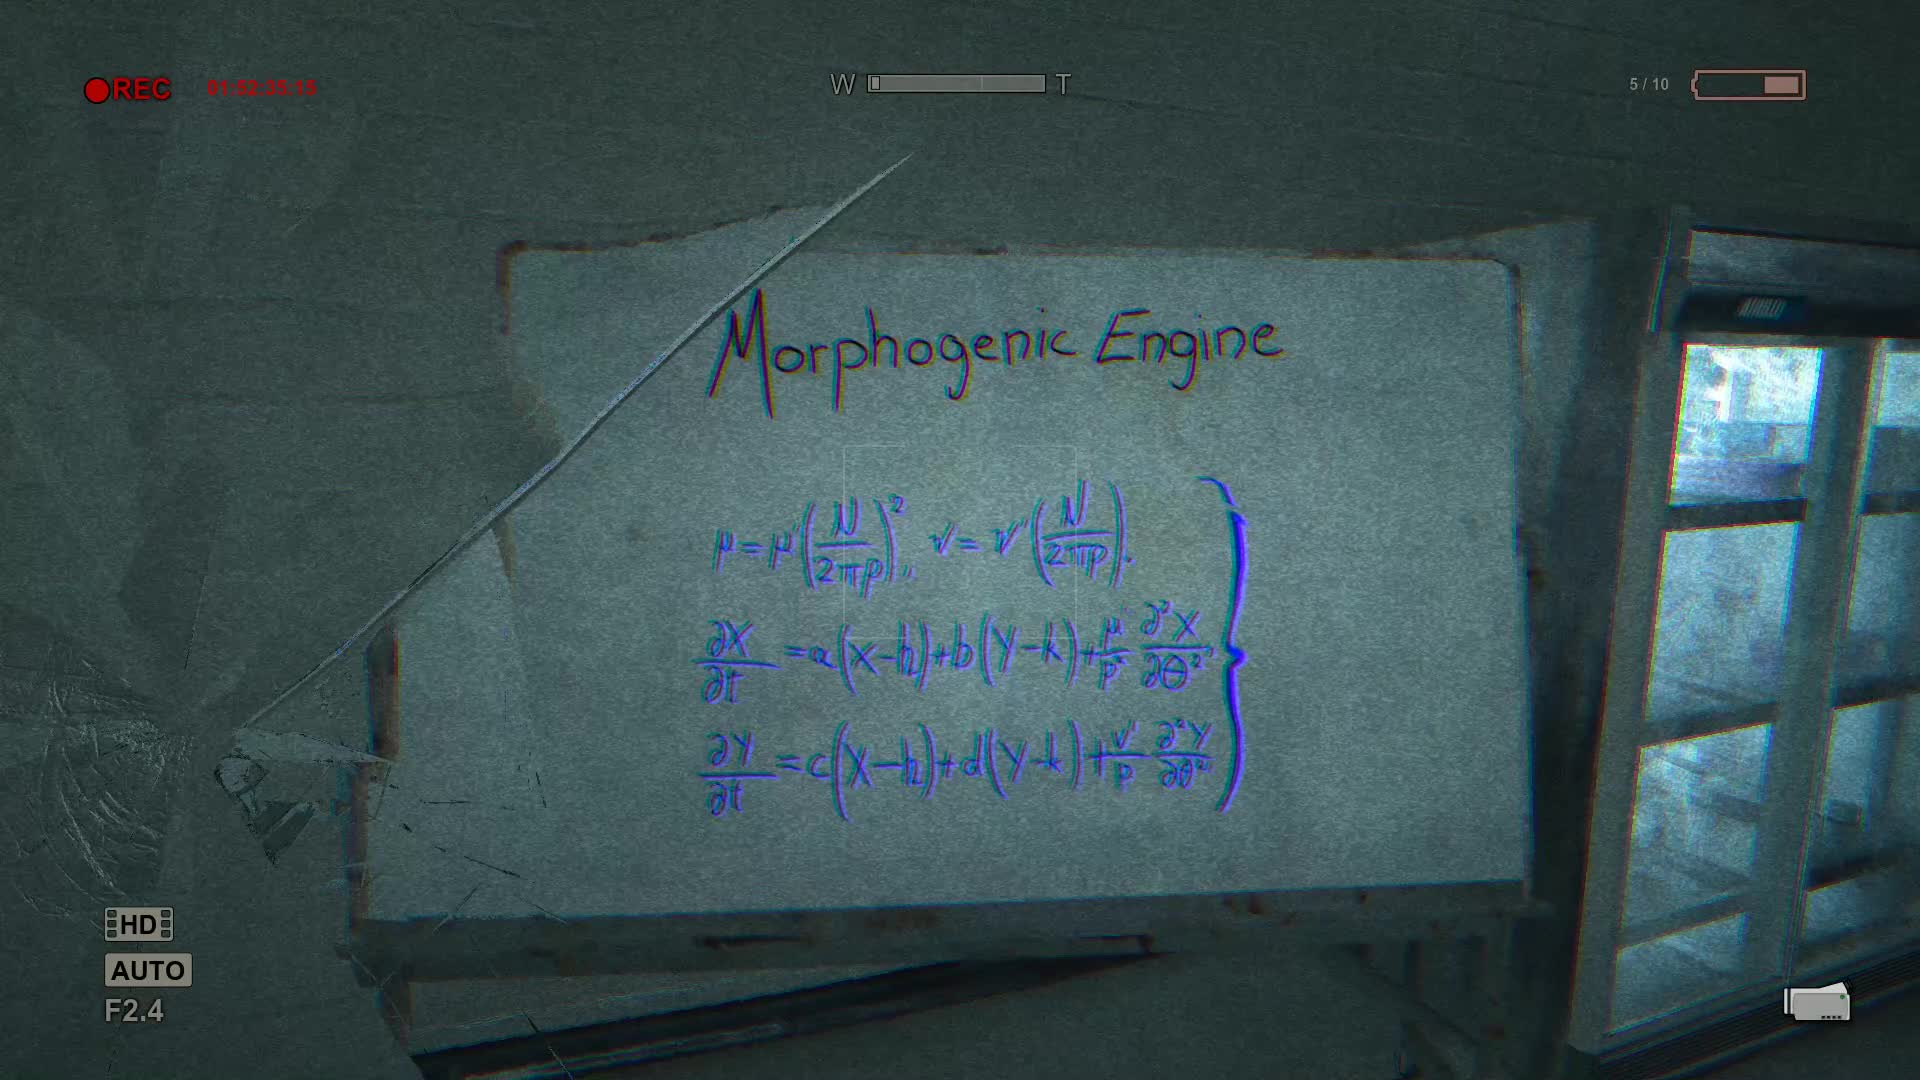 REC 01:52:35:15
W T
5 / 10
Morphogenic Engine
μ = μ'(N/2πρ)², ν = ν'(N/2πρ).
∂X/∂t = a(X-h)+b(Y-k)+μ'/ρ² ∂²X/∂θ²,
∂Y/∂t = c(X-h)+d(Y-k)+ν'/ρ ∂²Y/∂θ²
HD
AUTO
F2.4